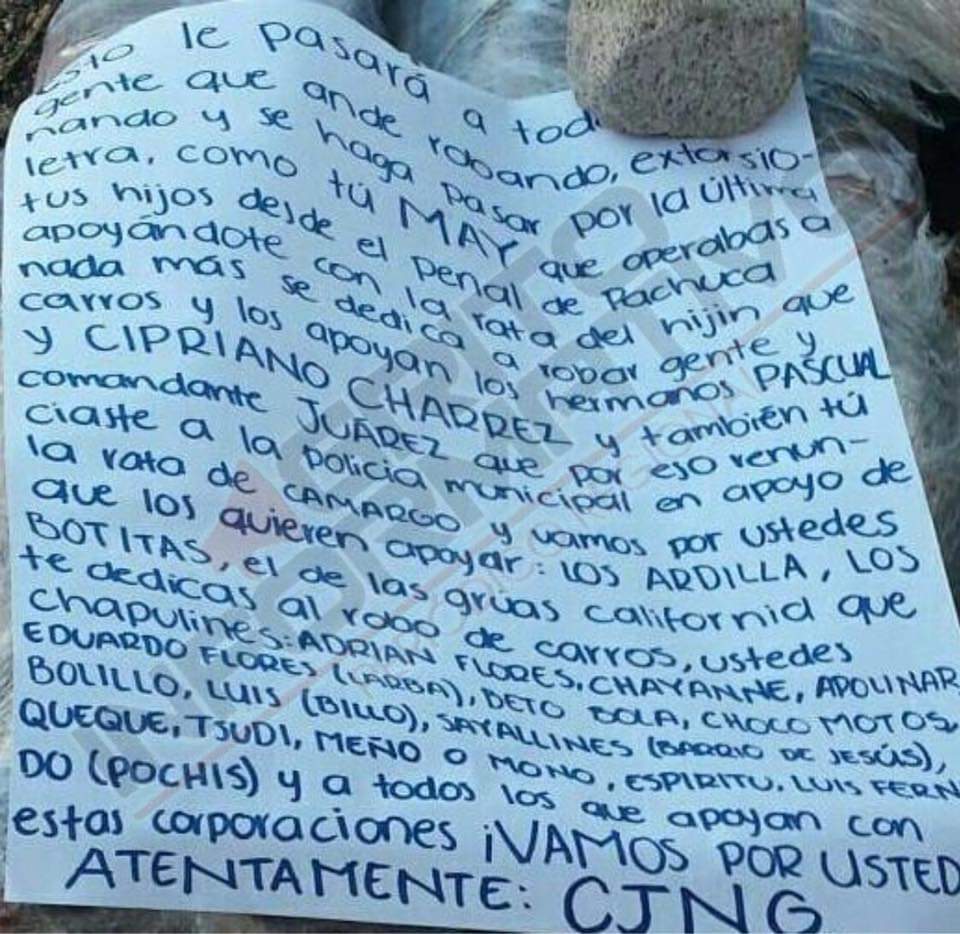 Esto le pasará a tod
gente que ande robando, extorsio-
nando y se haga pasar por la última
letra, como tú MAY que operabas a
tus hijos desde el penal de Pachuca
apoyándote con la rata del hijin que
nada más se dedica a robar gente y
carros y los apoyan los hermanos PASCUAL
y CIPRIANO CHARREZ y también tú
comandante JUÁREZ que por eso renun-
ciaste a la policía municipal en apoyo de
la rata de CAMARGO y vamos por ustedes
que los quieren apoyar: LOS ARDILLA, LOS
BOTITAS, el de las grúas california que
te dedicas al robo de carros, ustedes
chapulines: ADRIAN FLORES, CHAYANNE, APOLINAR
EDUARDO FLORES (LARBA), DETO BOLA, CHOCO MOTOS,
BOLILLO, LUIS (BILLO), SAYALLINES (BARRIO DE JESÚS),
QUEQUE, TSUDI, MEÑO O MONO, ESPIRITU, LUIS FERN
DO (POCHIS) y a todos los que apoyan con
estas corporaciones ¡VAMOS POR USTED
ATENTAMENTE: CJNG